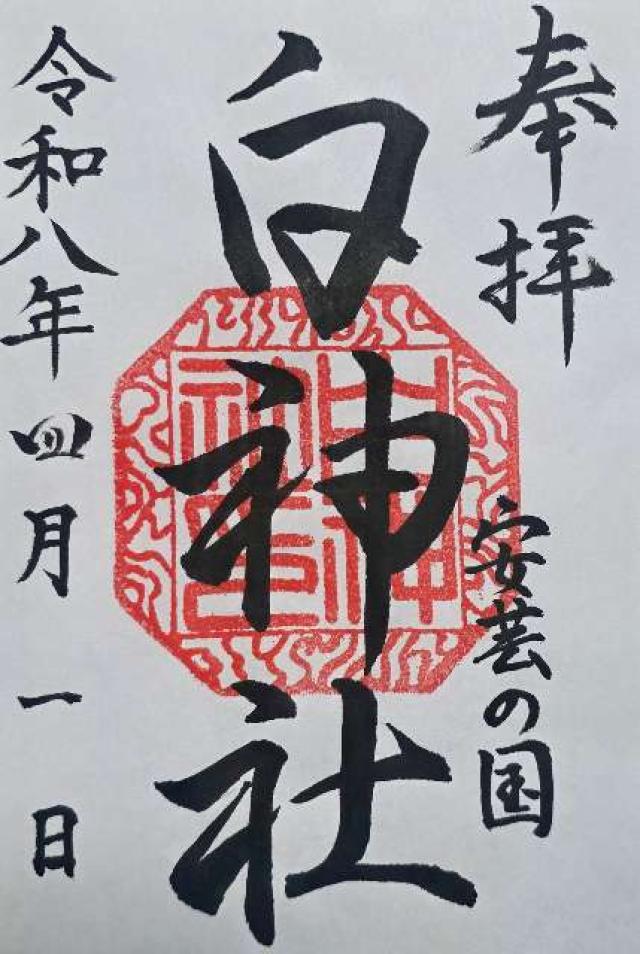 奉拝
安芸の国
白神社
令和八年四月一日